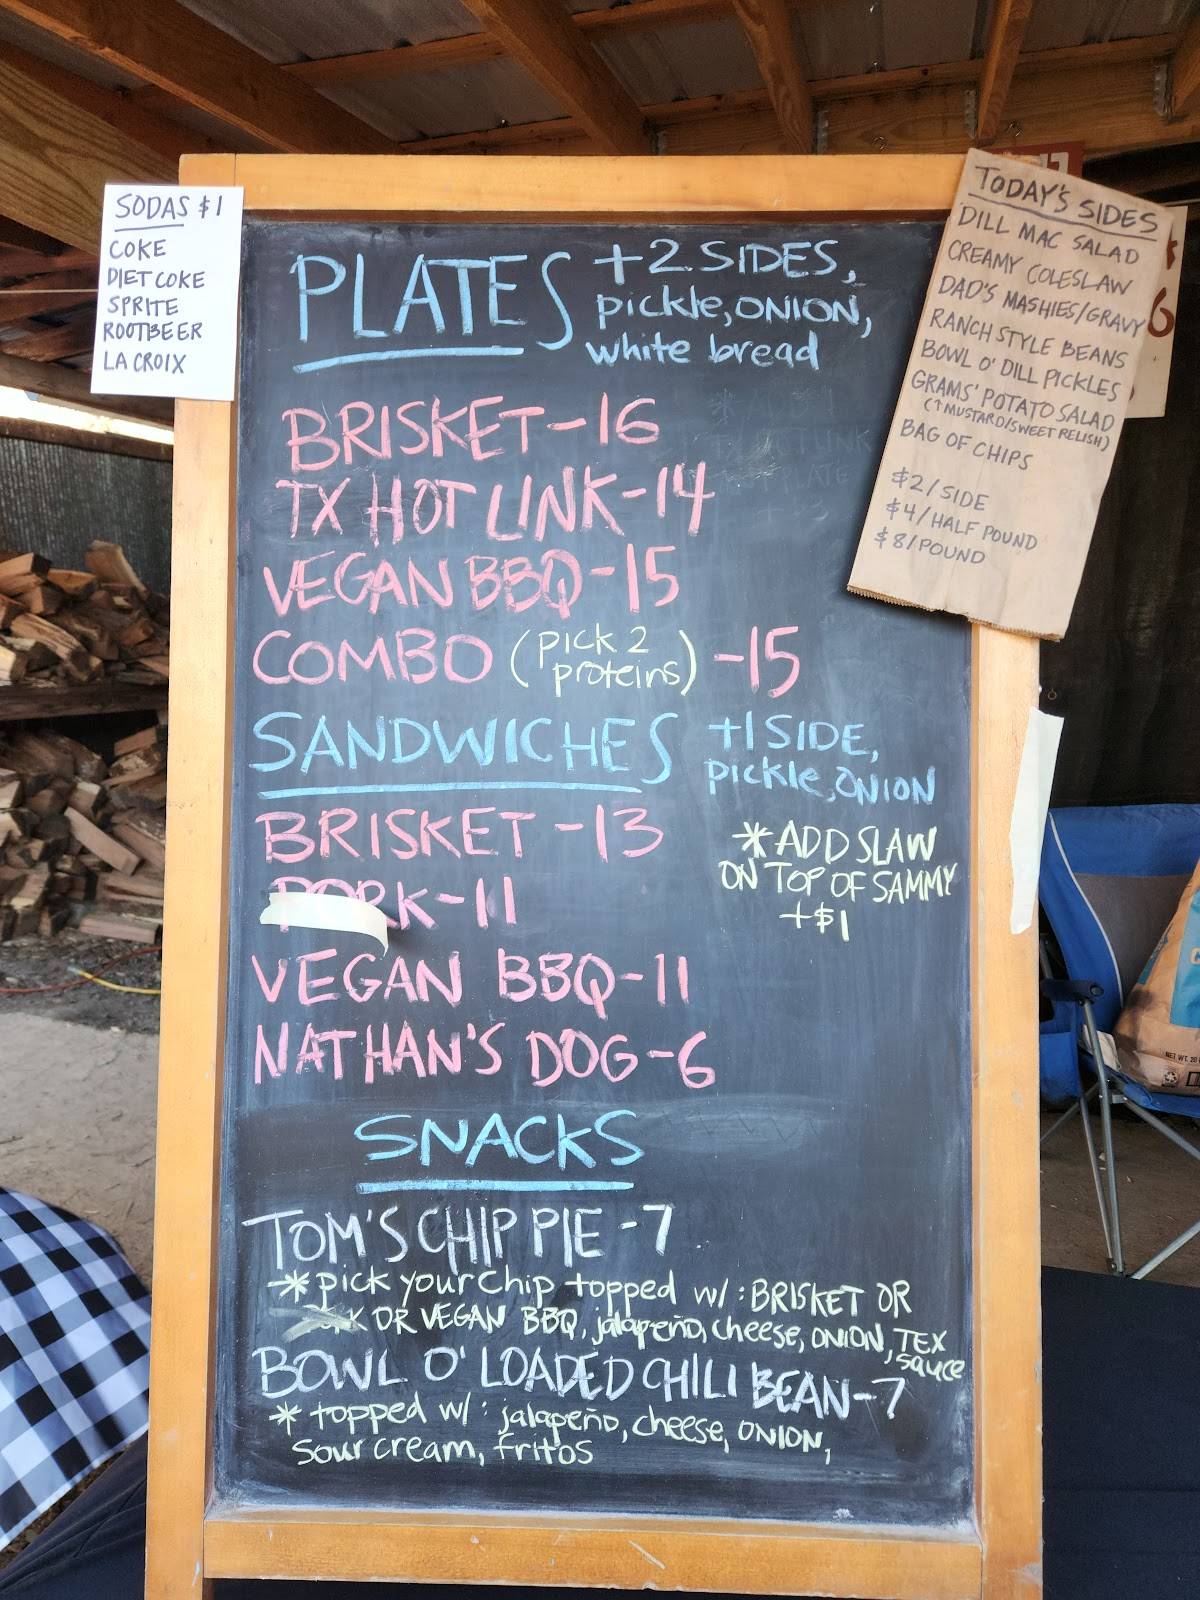 SODAS $1
COKE
DIET COKE
SPRITE
ROOTBEER
LA CROIX
PLATES +2 SIDES,
pickle, ONION,
white bread
BRISKET-16
TX HOT LINK-14
VEGAN BBQ-15
COMBO (pick 2
proteins) -15
SANDWICHES +1 SIDE,
pickle, ONION
BRISKET-13
PORK-11
VEGAN BBQ-11
NATHAN'S DOG-6
* ADD SLAW
ON TOP OF SAMMY
+$1
SNACKS
TOM'S CHIP PIE-7
* pick your chip topped w/: BRISKET OR
OR VEGAN BBQ, jalapeño, cheese, ONION, TEX
sauce
BOWL O' LOADED CHILI BEAN-7
* topped w/: jalapeño, cheese, ONION,
sour cream, fritos
TODAY'S SIDES
DILL MAC SALAD
CREAMY COLESLAW
DAD'S MASHIES/GRAVY
RANCH STYLE BEANS
BOWL O' DILL PICKLES
GRAMS' POTATO SALAD
(↑MUSTARD/SWEET RELISH)
BAG OF CHIPS
$2/SIDE
$4/HALF POUND
$8/POUND